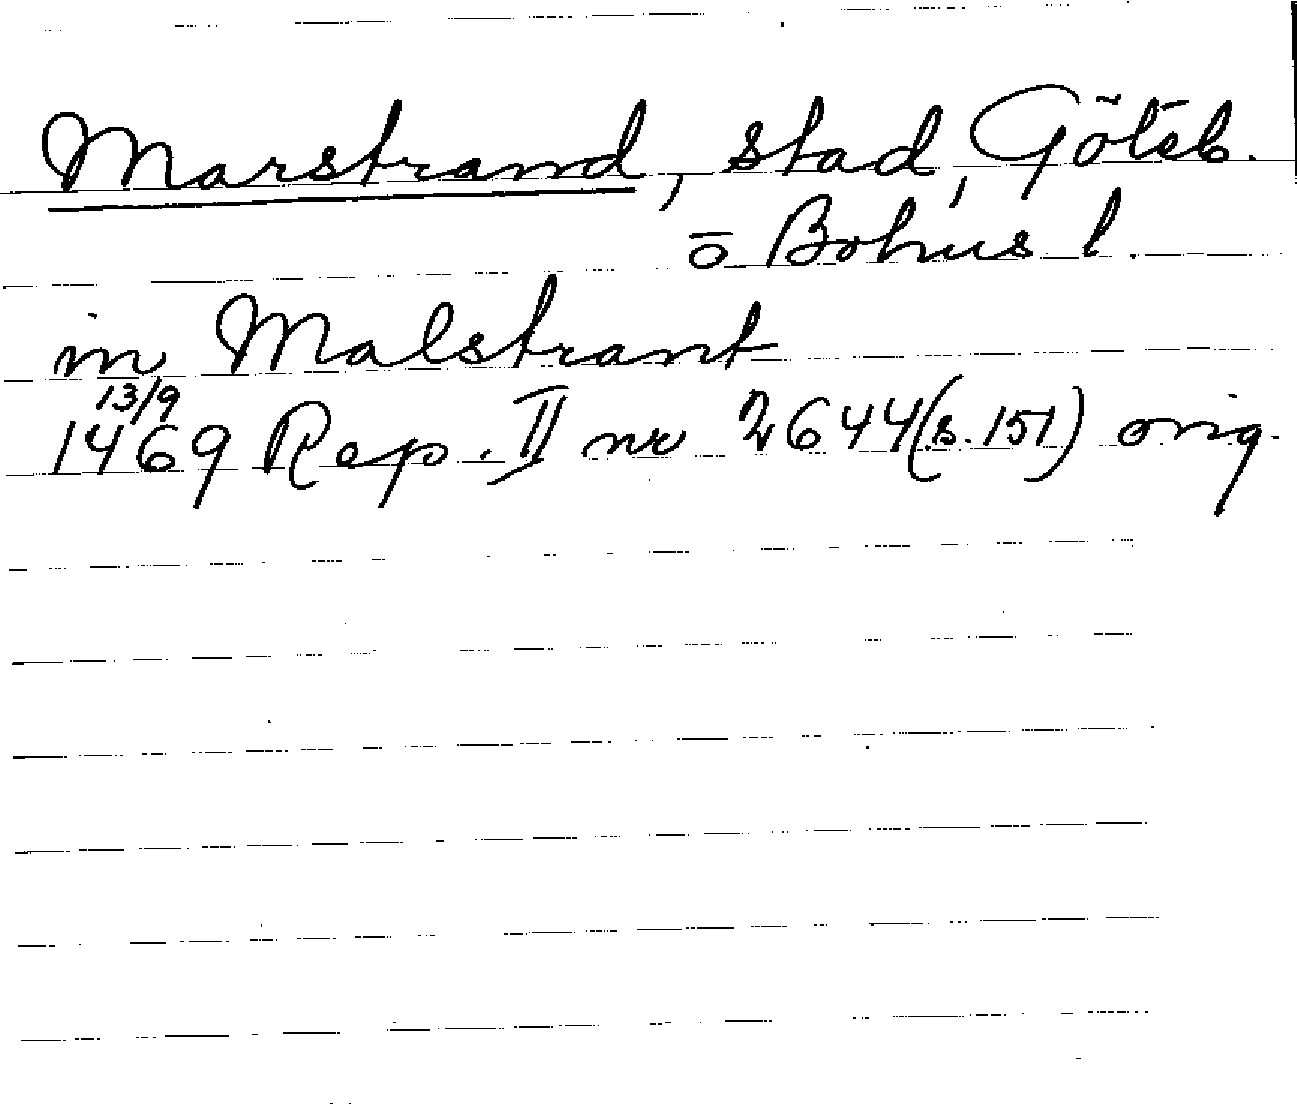 Marstrand, stad, Göteb.
o Bohus l.
in Malstrant
13/9
1469 Rep. II nr 2644 (s. 151) orig.